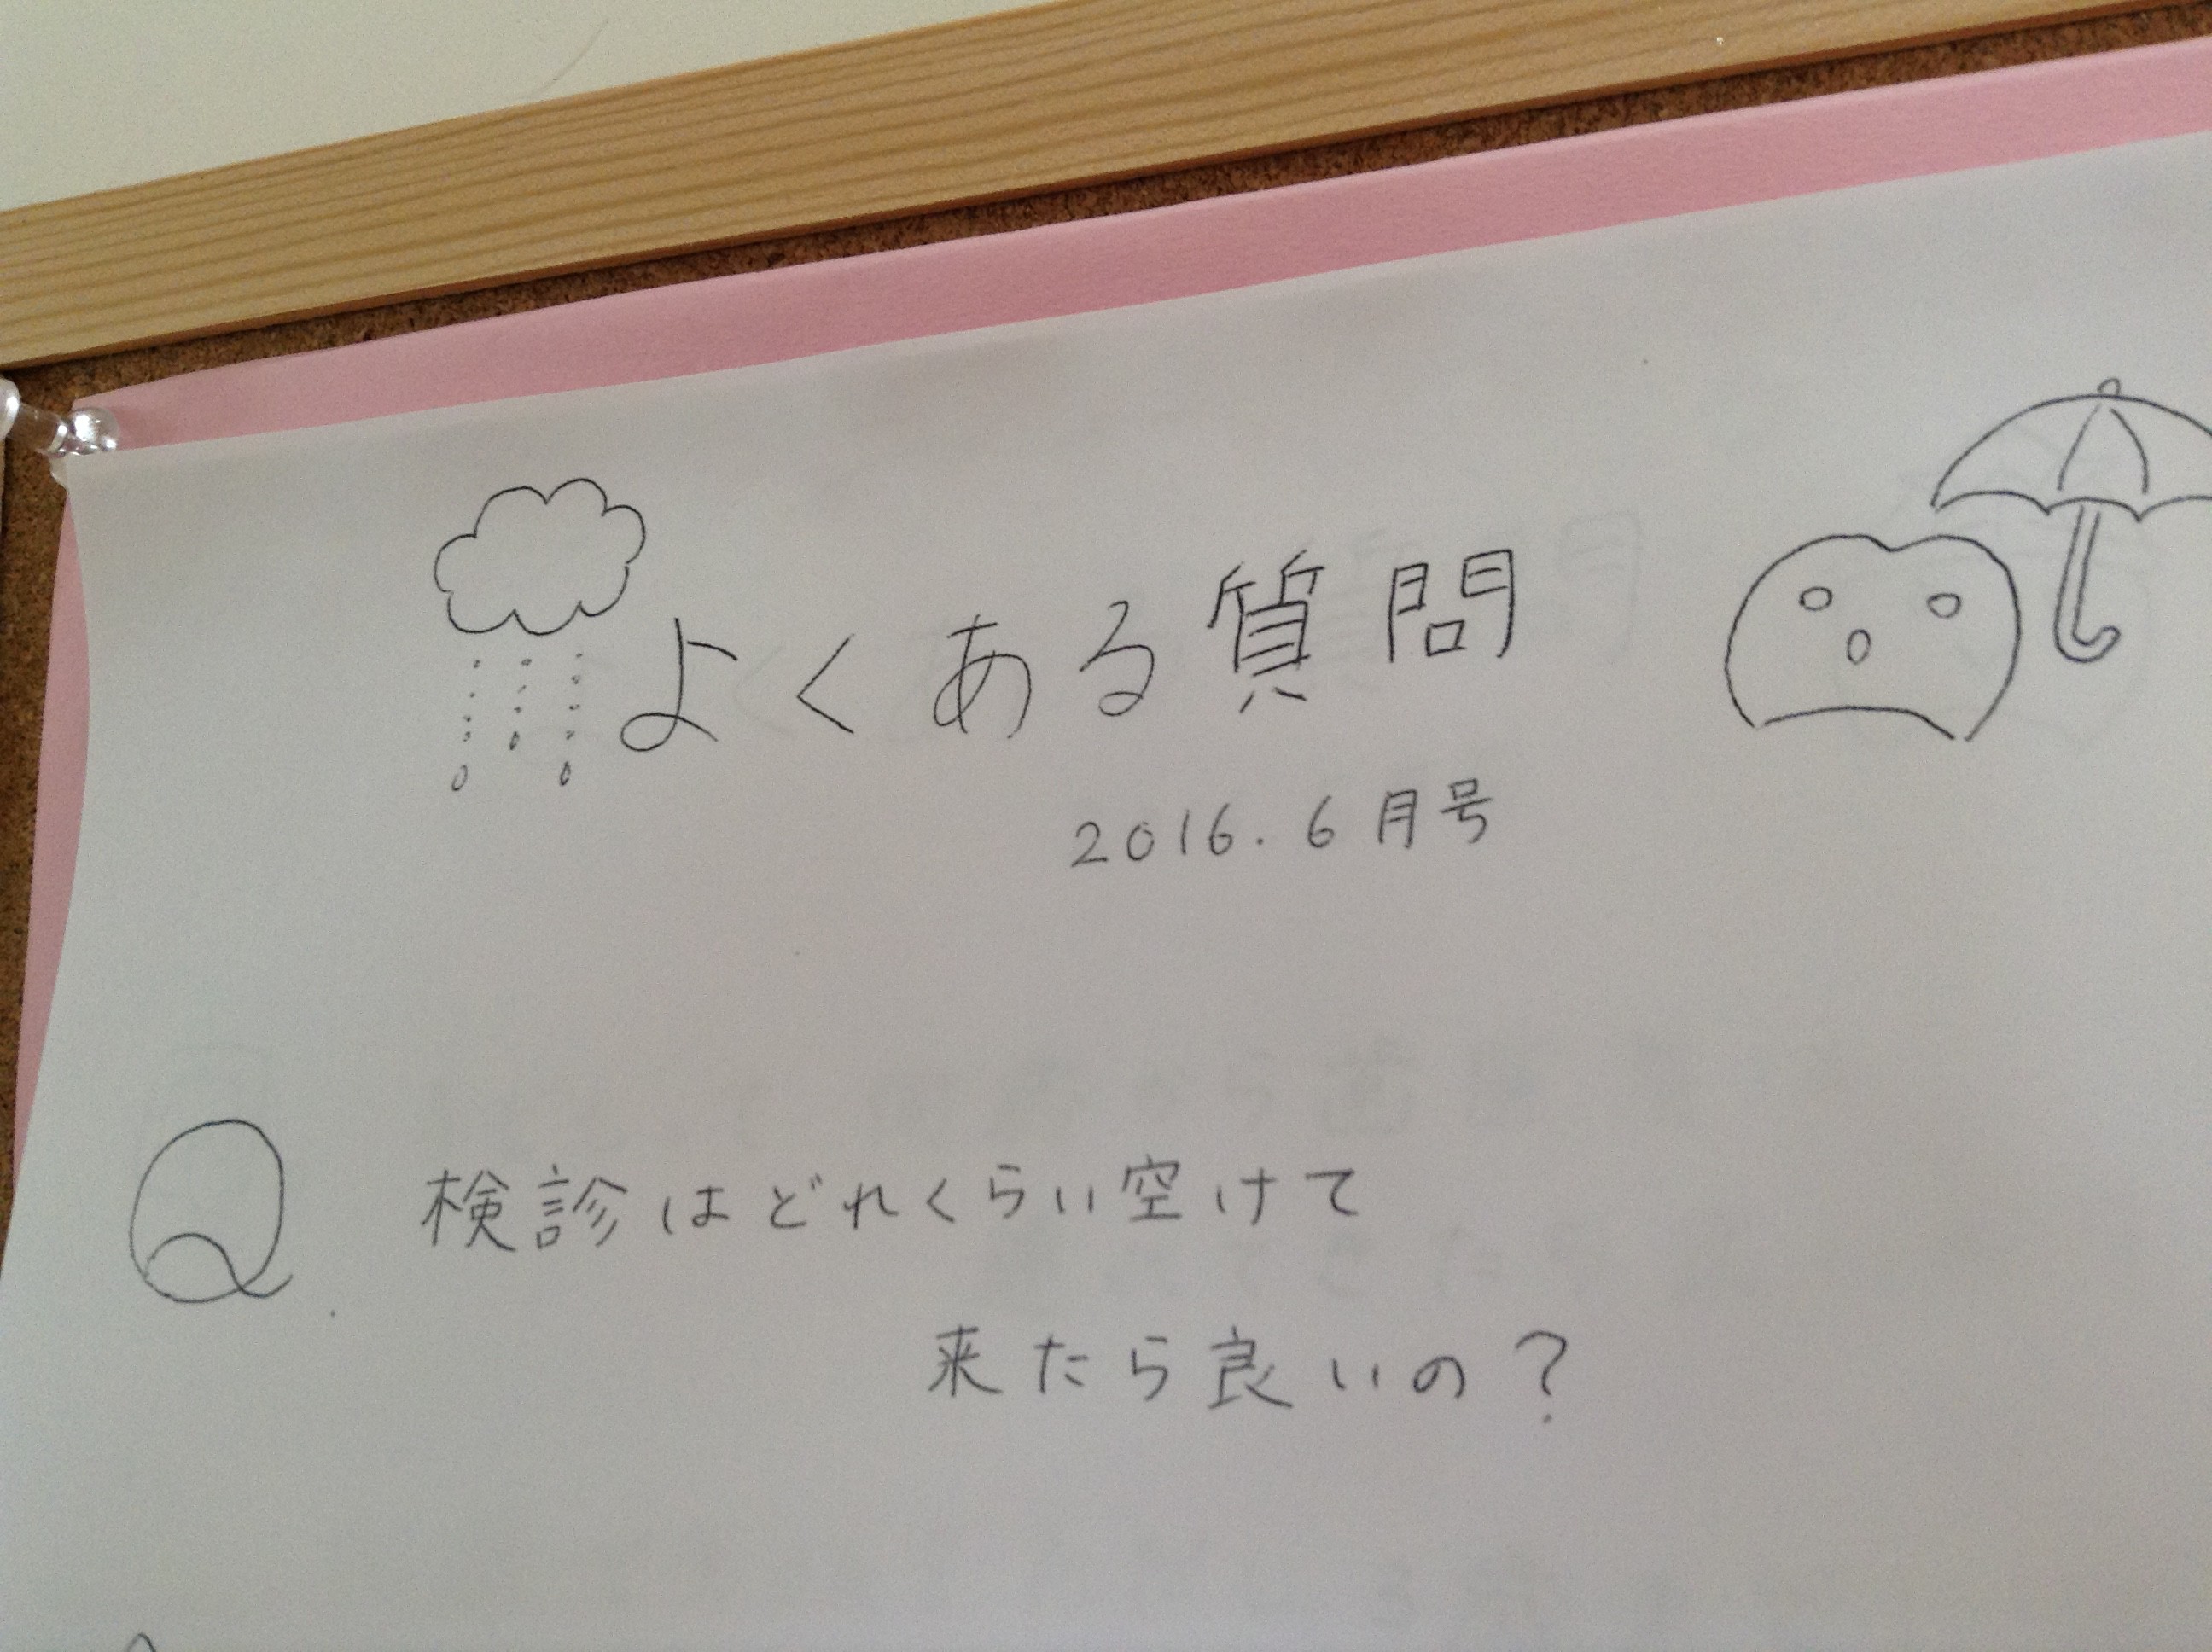 よくある質問
2016.6月号
Q 検診はどれくらい空けて
来たら良いの?